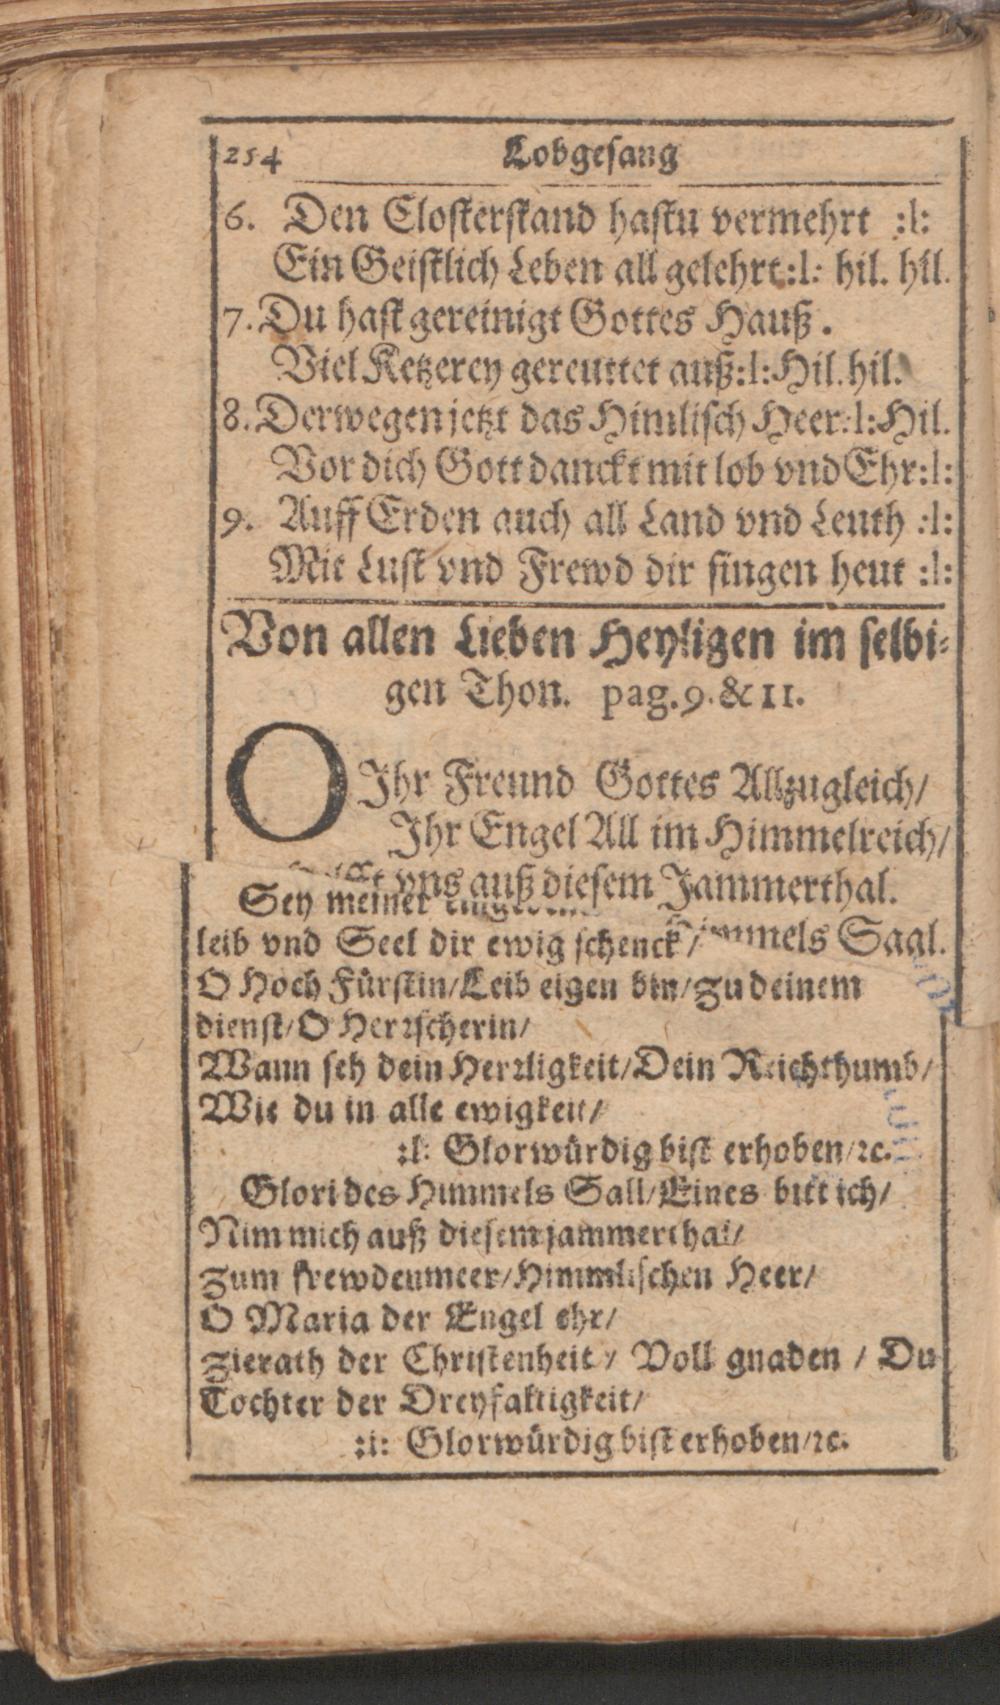 254 Lobgesang
6. Den Closterstand hastu vermehrt :l:
Ein Geistlich Leben all gelehrt:l: hil. hil.
7. Du hast gereinigt Gottes Hauß.
Viel Ketzerey gereuttet auß:l:Hil.hil.
8. Derwegen jetzt das Himlisch Heer:l:Hil.
Vor dich Gott danckt mit lob vnd Ehr:l:
9. Auff Erden auch all Land vnd Leuth :l:
Mit Lust vnd Frewd dir singen heut :l:
Von allen Lieben Heyligen im selbi-
gen Thon. pag.9.&11.
O Ihr Freund Gottes Allzugleich/
Ihr Engel All im Himmelreich/
vns auß diesem Jammerthal.
Sey meiner
Sagl.
leib vnd Seel dir ewig schenck/
O Hoch Fürstin/Leib eigen bin/zu deinem
dienst/O Herrscherin/
Wann seh dein Herrligkeit/Dein Reichthumb/
Wie du in alle ewigkeit/
:l: Glorwürdig bist erhoben/ꝛc.
Glori des Himmels Sall/Eines bitt ich/
Nim mich auß diesem jammerthal/
Zum frewdenmeer/Himmlischen Heer/
O Maria der Engel ehr/
Zierath der Christenheit / Voll gnaden / Du
Tochter der Dreyfaltigkeit/
:l: Glorwürdig bist erhoben/ꝛc.